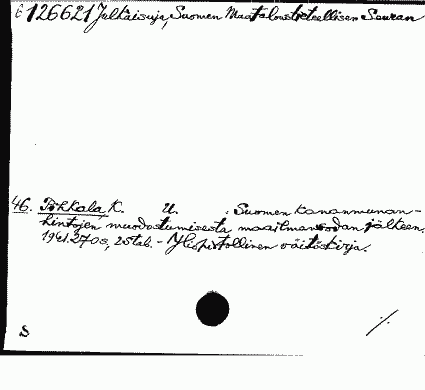 126621 Julkaisuja, Suomen Maataloustieteellisen Seuran
46. Pihkala, K. U. : Suomen kananmunan-
hintojen muodostumisesta maailmansodan jälkeen.
1941. 270 s, 25 tab. - Yliopistollinen väitöskirja.
S